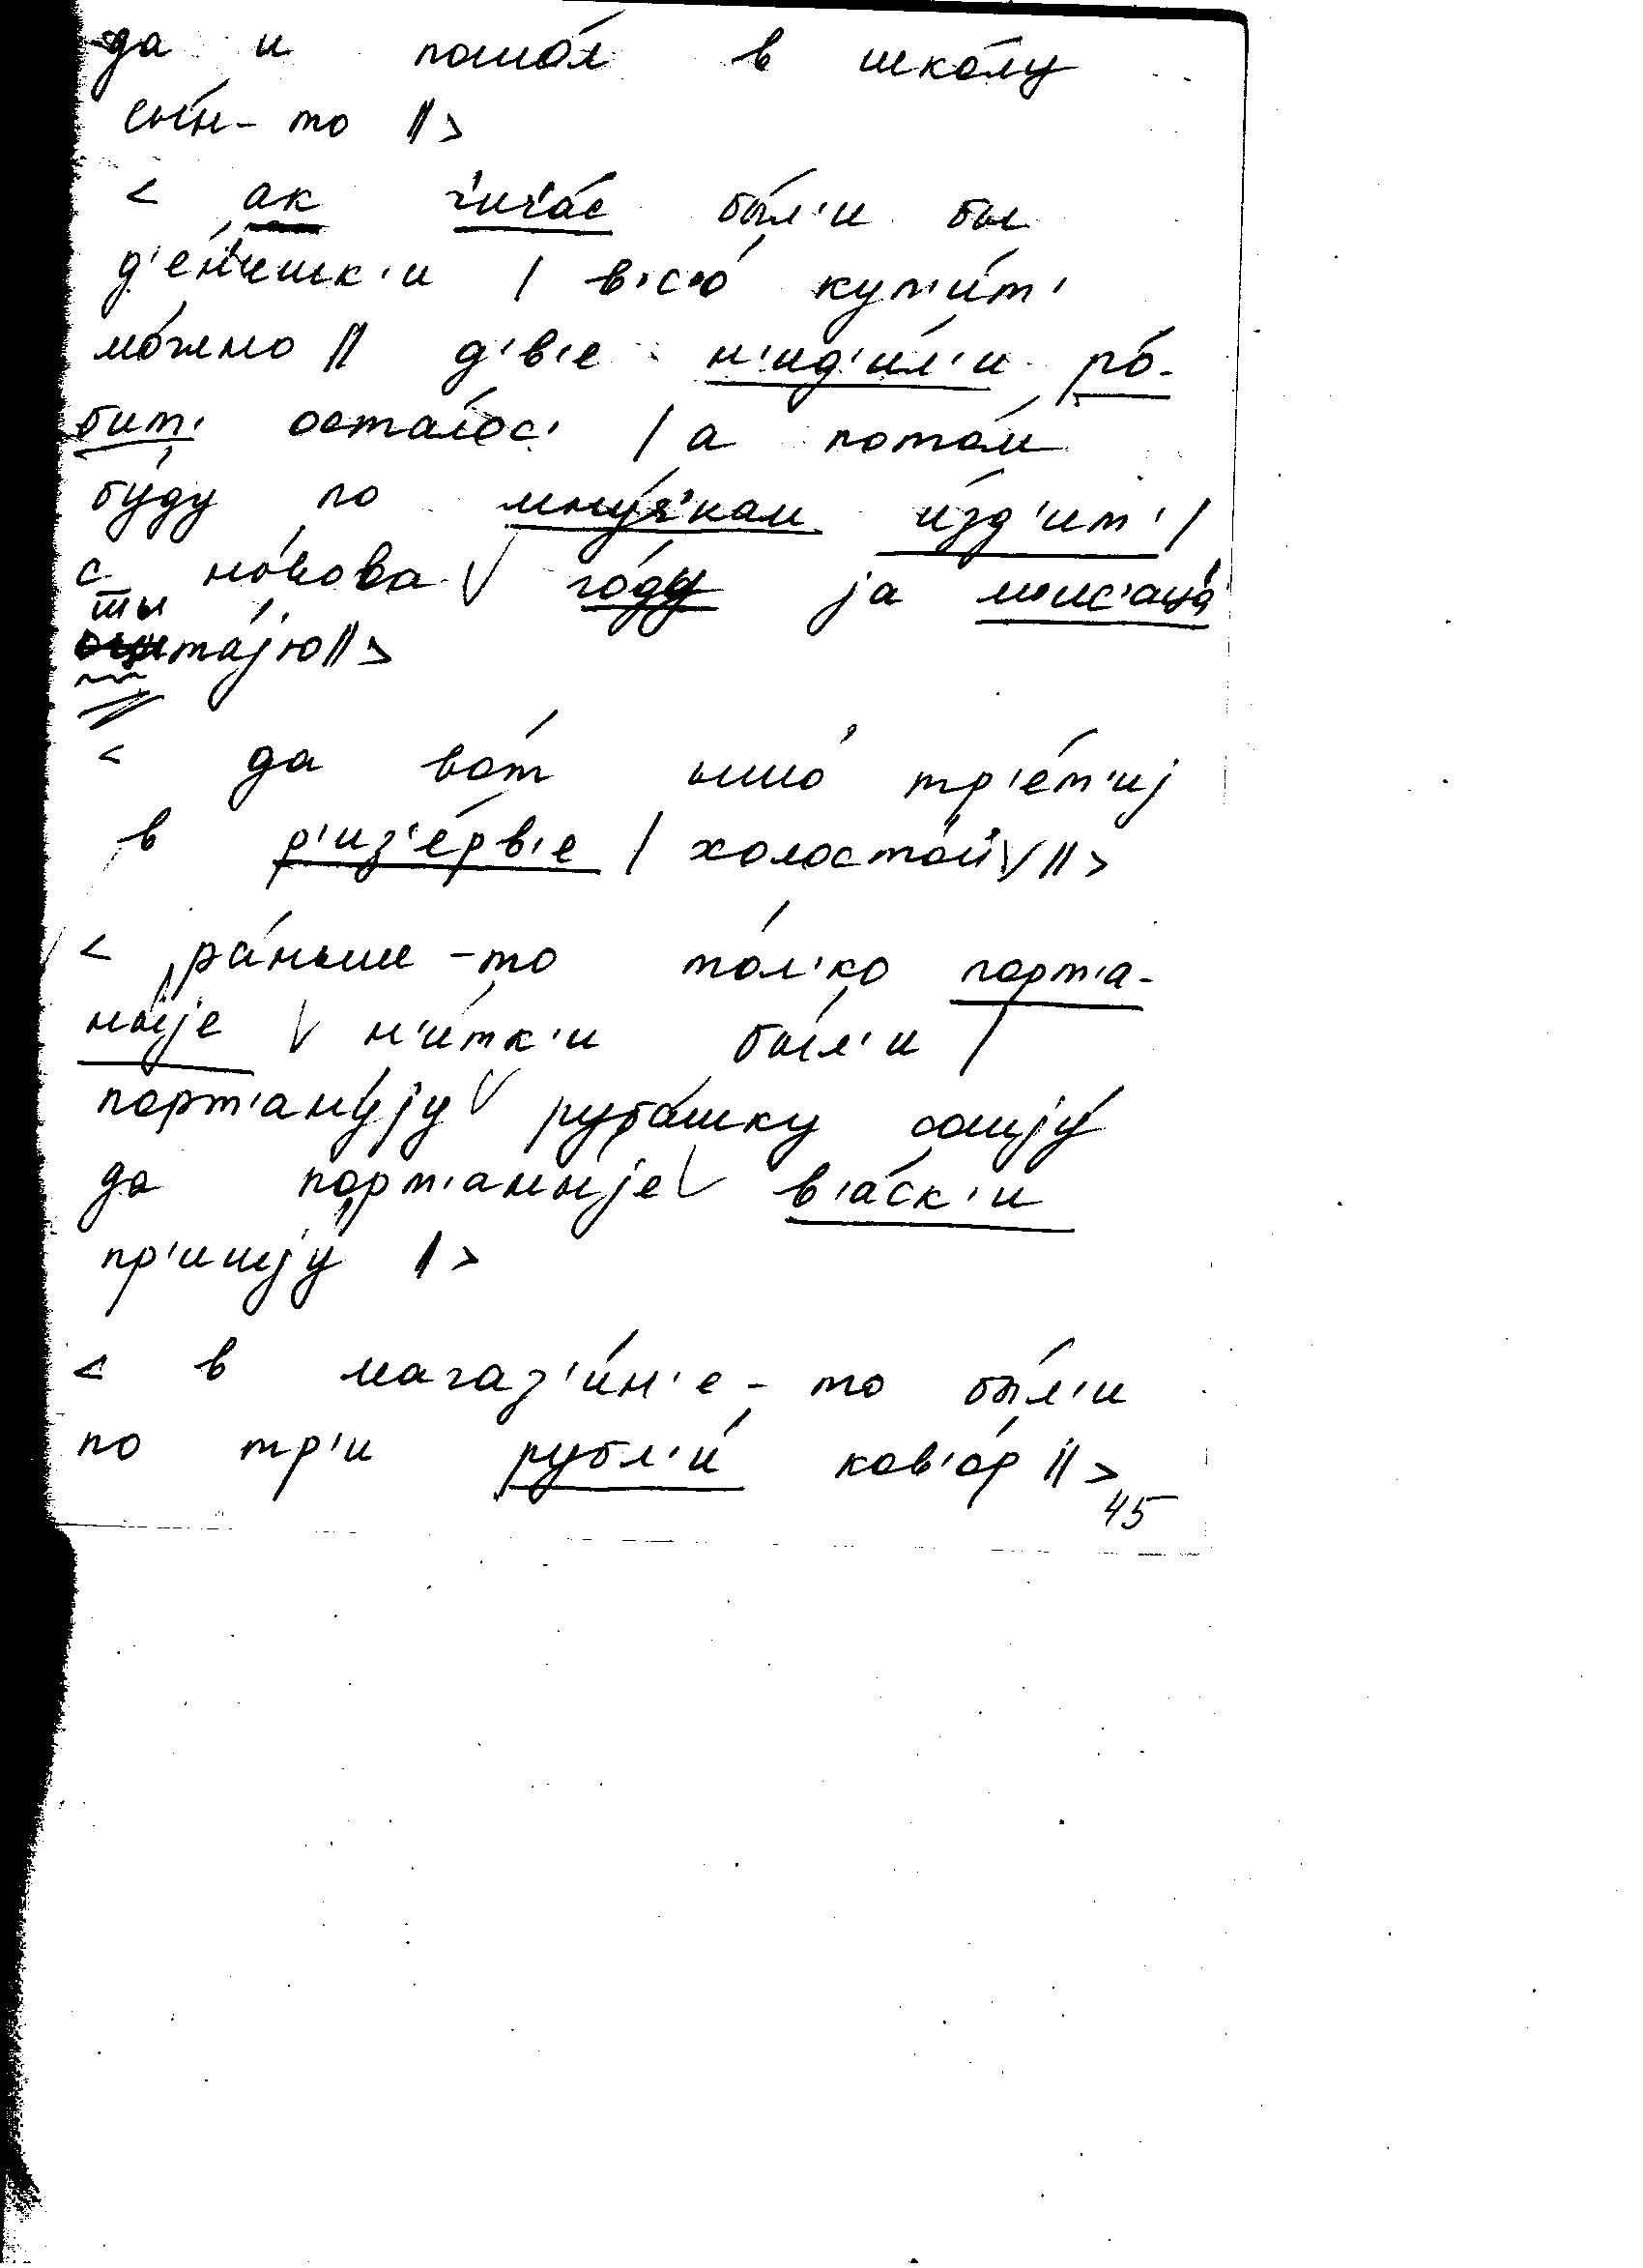 да и пошо́л в шко́лу
сы́н-то ‖>
< ак ч'ич'а́с бы́л'и бы
д'е́н'ишк'и / в'с'о́ куп'и́т'
мо́жно ‖ д'в'е н'ид'и́л'и ро́-
бит' оста́лос' / а пото́м
бу́ду по мну́ч'кам и́зд'ит' /
с но́вова ∨ го́ду ја
ты
та́ју ‖>
< да во́т тр'е́т'иј
в р'из'е́рв'е / холосто́й ∨ ‖>
< ра́ньше-то то́л'ко порт'а-
ны́је ∨ н'и́тк'и бы́л'и /
порт'ану́ју ∨ руба́шку сошју́
да порт'аныје ∨ в'а́ск'и
пр'ишју́ ‖>
< в магаз'и́н'е-то бы́л'и
по тр'и рубл'и́ ков'о́р ‖>
45